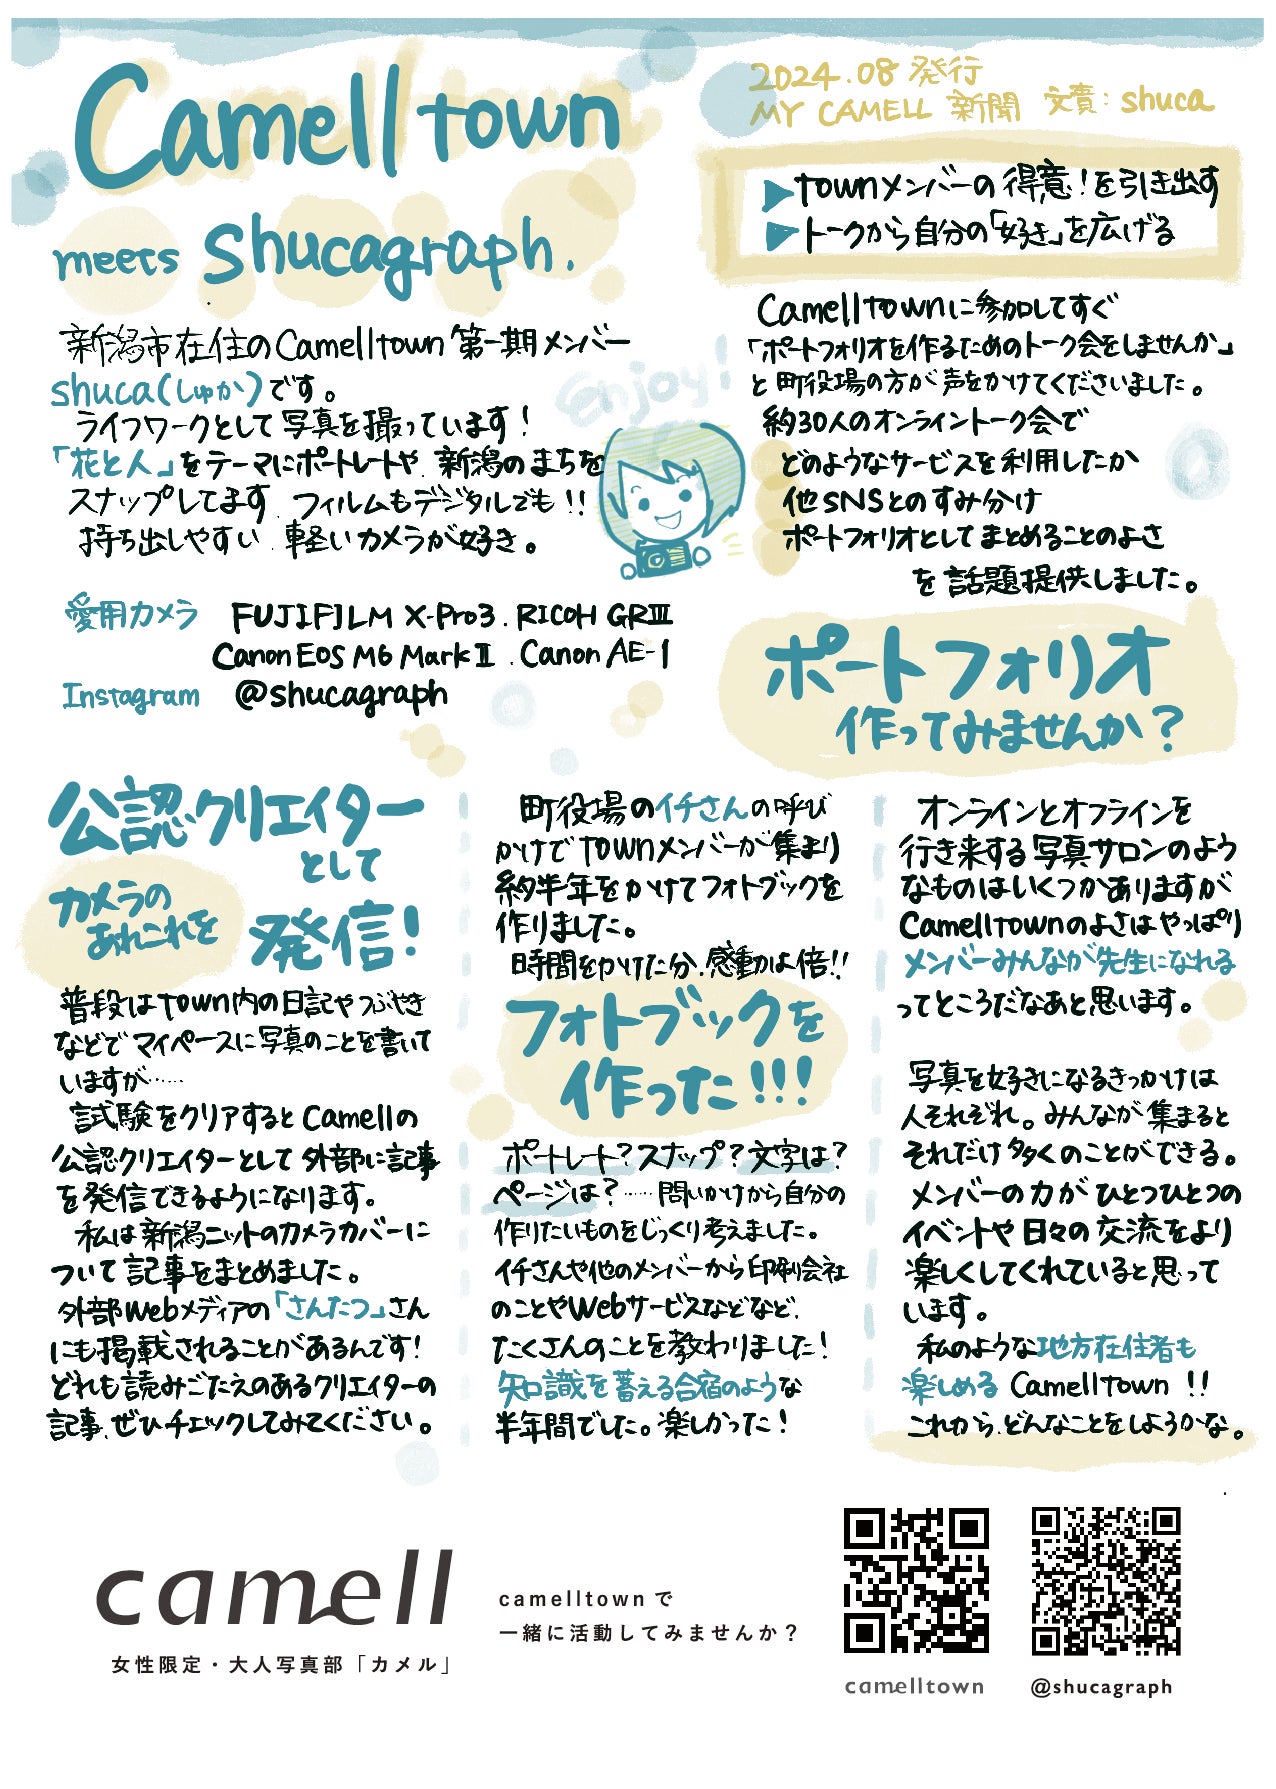 Camell town
meets shucagraph.
2024.08 発行
MY CAMELL 新聞 文責：shuca
▶townメンバーの得意！を引き出す
▶トークから自分の「好き」を広げる
新潟市在住のCamelltown 第一期メンバー
shuca(しゅか)です。
ライフワークとして写真を撮っています！
「花と人」をテーマにポートレートや、新潟のまちを
スナップしてます。フィルムもデジタルでも！！
持ち出しやすい、軽いカメラが好き。
Enjoy!
愛用カメラ FUJIFILM X-Pro3. RICOH GRⅢ
Canon EOS M6 Mark Ⅱ . Canon AE-1
Instagram @shucagraph
Camelltownに参加してすぐ
「ポートフォリオを作るためのトーク会をしませんか」
と町役場の方が声をかけてくださいました。
約30人のオンライントーク会で
どのようなサービスを利用したか
他SNSとのすみ分け
ポートフォリオとしてまとめることのよさ
を話題提供しました。
ポートフォリオ
作ってみませんか？
公認クリエイター
として
カメラの
あれこれを
発信！
普段はtown内の日記やつぶやき
などでマイペースに写真のことを書いて
いますが……
試験をクリアするとCamellの
公認クリエイターとして外部に記事
を発信できるようになります。
私は新潟ニットのカメラカバーに
ついて記事をまとめました。
外部Webメディアの「さんたつ」さん
にも掲載されることがあるんです！
どれも読みごたえのあるクリエイターの
記事、ぜひチェックしてみてください。
町役場のイチさんの呼び
かけでtownメンバーが集まり
約半年をかけてフォトブックを
作りました。
時間をかけた分、感動は倍！！
フォトブックを
作った！！！
ポートレート？スナップ？文字は？
ページは？……問いかけから自分の
作りたいものをじっくり考えました。
イチさんや他のメンバーから印刷会社
のことやWebサービスなどなど、
たくさんのことを教わりました！
知識を蓄える合宿のような
半年間でした。楽しかった！
オンラインとオフラインを
行き来する写真サロンのよう
なものはいくつかありますが
Camelltownのよさはやっぱり
メンバーみんなが先生になれる
ってところだなあと思います。
写真を好きになるきっかけは
人それぞれ。みんなが集まると
それだけ多くのことができる。
メンバーの力がひとつひとつの
イベントや日々の交流をより
楽しくしてくれていると思って
います。
私のような地方在住者も
楽しめる Camelltown ！！
これから、どんなことをしようかな。
camell
女性限定・大人写真部「カメル」
camelltownで
一緒に活動してみませんか？
camelltown
@shucagraph